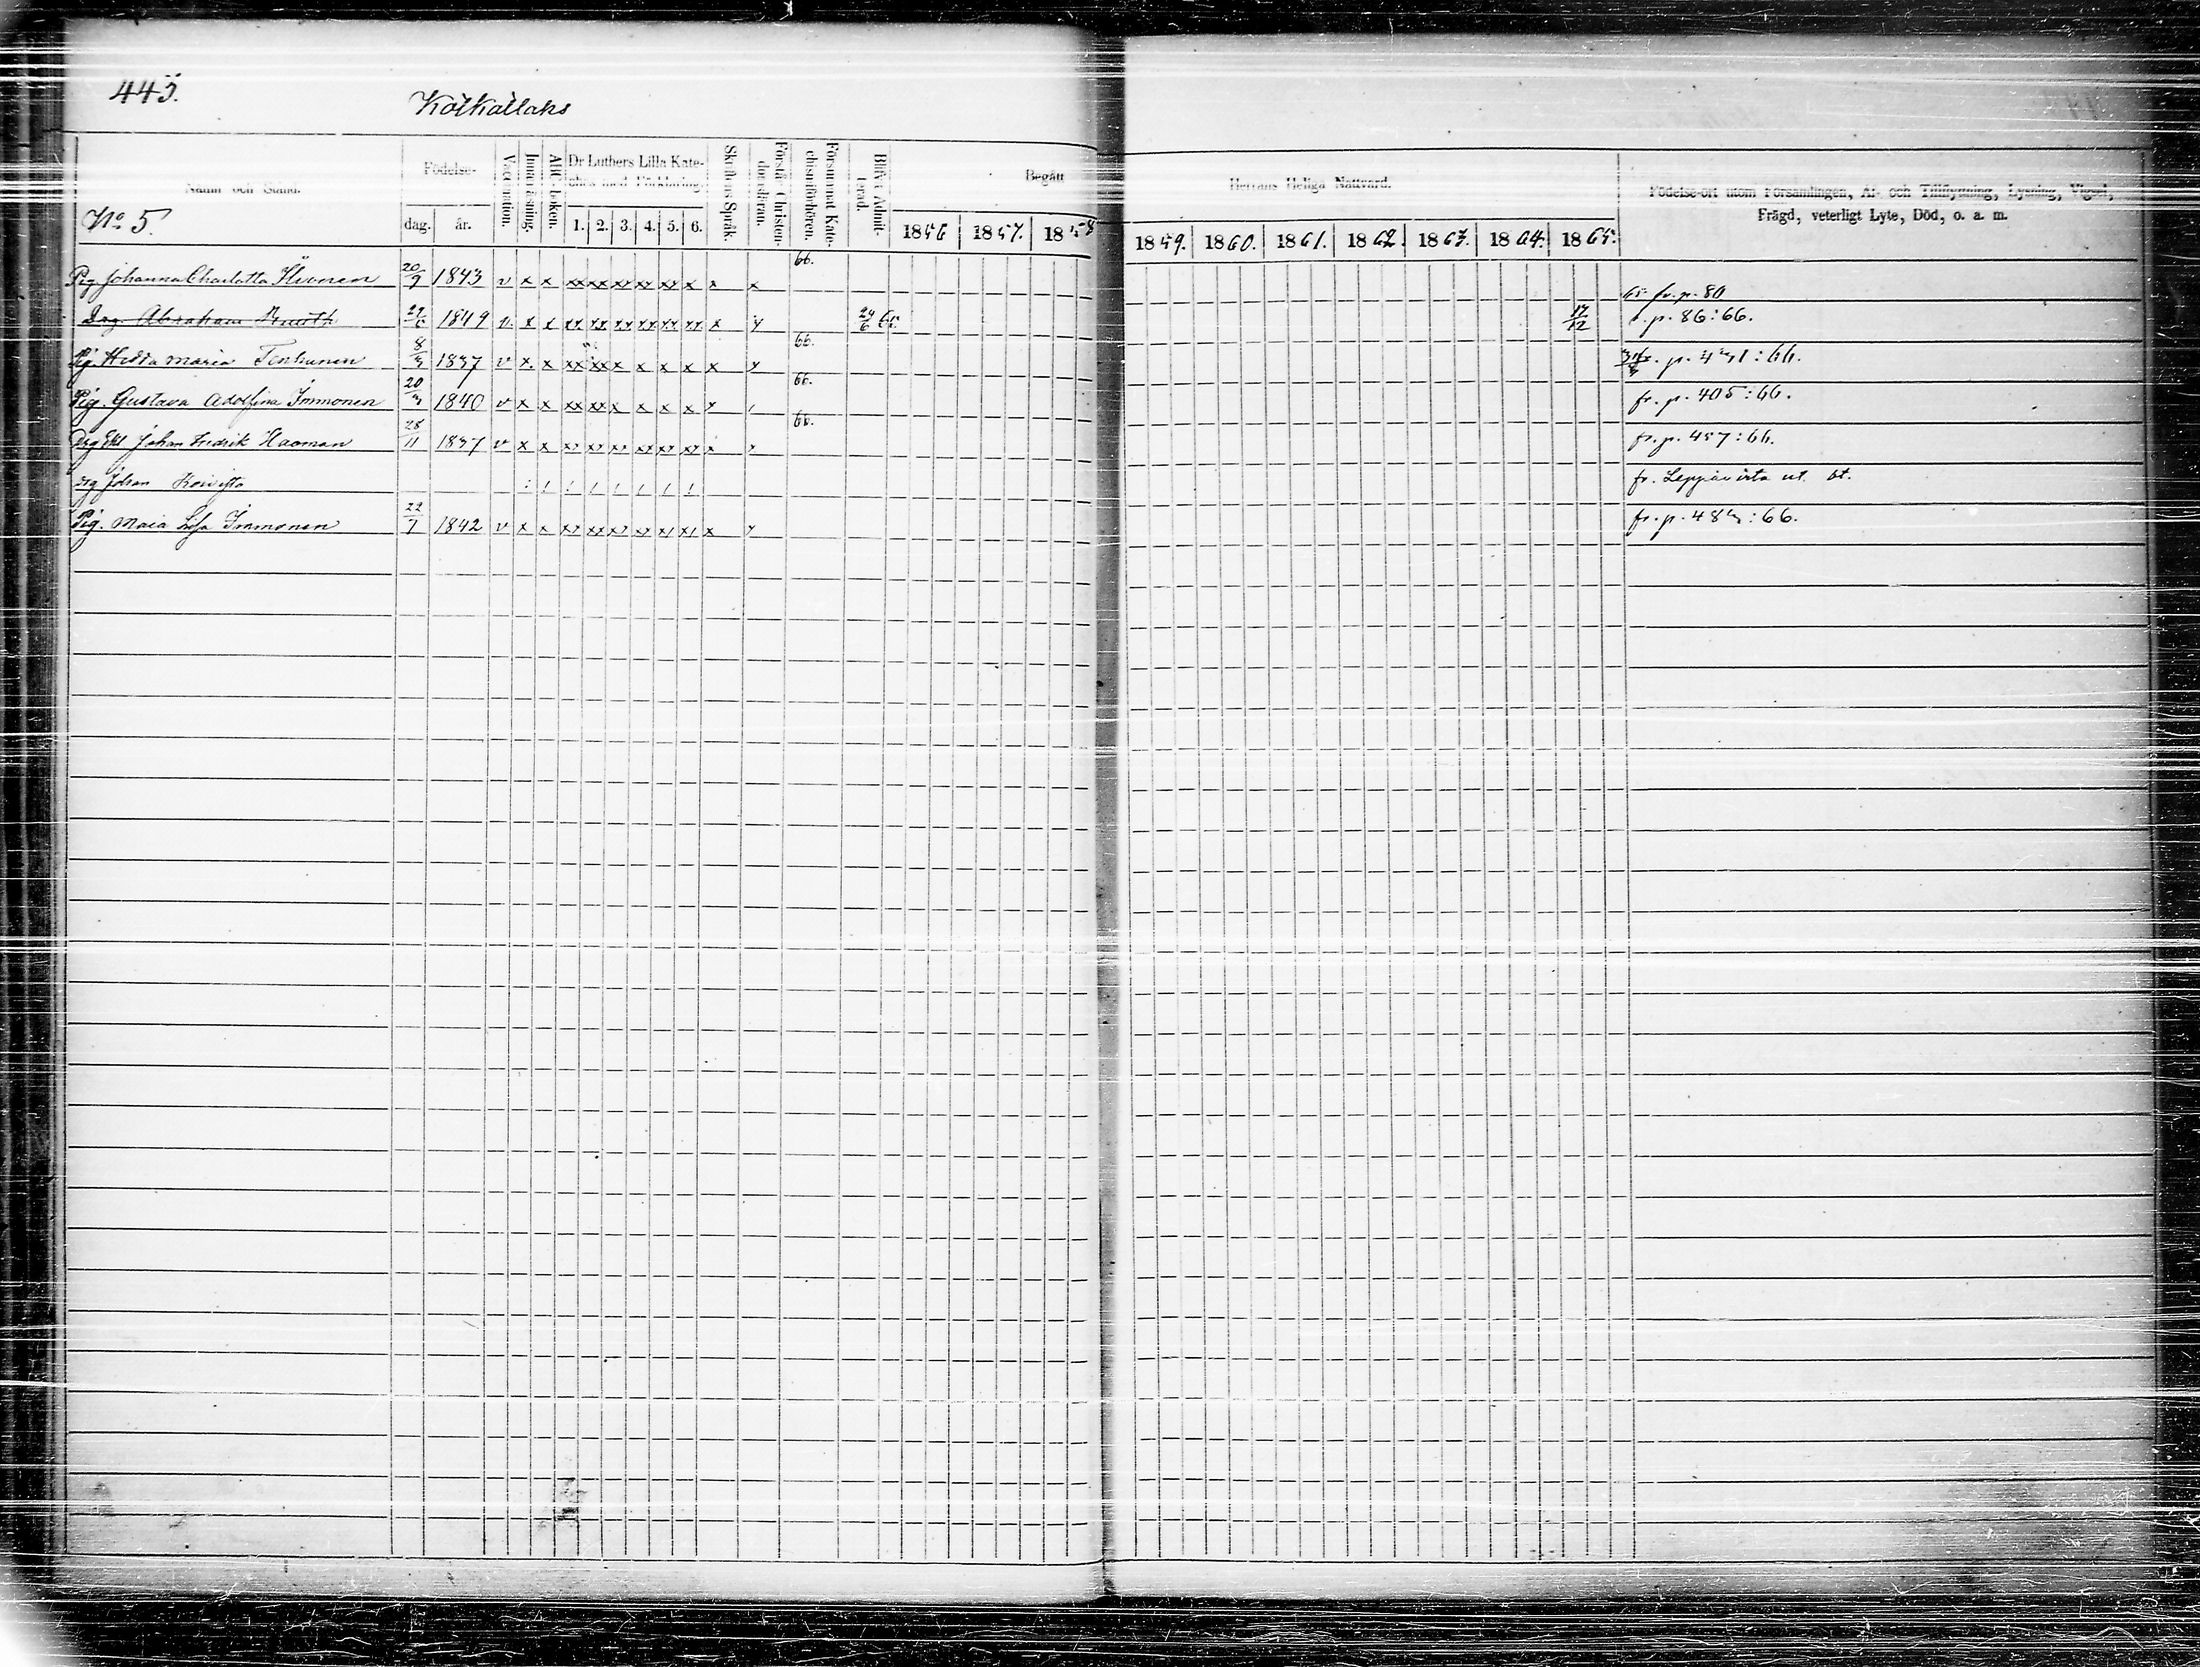 445.
Kotkatlaks
Namn och Stånd.
Födelse-
dag. år.
Vaccination.
Innanläsning.
ABC-boken.
Dr Luthers Lilla Kate-
ches med Förklaring.
1. 2. 3. 4. 5. 6.
Skriftens Språk.
Förstå Christen-
domsläran.
Försummat Kate-
chismiförhören.
Blifvit Admit-
terad.
Begått
Herrans Heliga Nattvard.
1856 1857. 1858
1859. 1860. 1861. 1862. 1863. 1864. 1865.
Födelse-ort utom Församlingen, Af- och Tillflyttning, Lysning, Vigsel,
Frägd, veterligt Lyte, Död, o. a. m.
No 5.
Pig. Johanna Charlotta 20/9 1843 v x x xx xx xx xx xx x x x 66. fr. p. 80
Drg Abraham 1849 v. x x xx xx xx xx xx xx x y 24/6 17/12 p. 86:66.
Pig. Hedda Maria 8/3 1837 v x. x xx xx x x x x x y 66. :66.
Pig. Gustava Adolfina Immonen 20/3 1840 v x x xx xx x x x x 66. fr. p. 405:66.
Johan Fredrik Haoman 28/11 1837 v x x 66. fr. p. 457:66.
drg Johan Koivisto fr. Leppävirta
Pig. Maia Lisa Immonen 22/7 1842 v x x x y fr. p. :66.